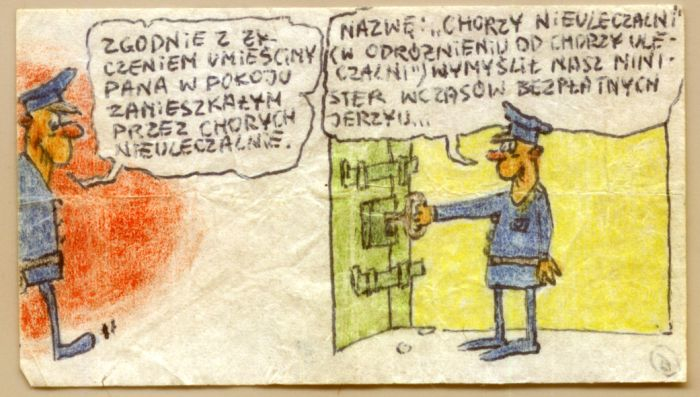 ZGODNIE Z ŻY-
CZENIEM UMIEŚCIMY
PANA W POKOJU
ZAMIESZKAŁYM
PRZEZ CHORYCH
NIEULECZALNIE.
NAZWĘ: „CHORZY NIEULECZALNI”
(W ODRÓŻNIENIU OD CHORZY ULE-
CZALNI”) WYMYŚLIŁ NASZ MINI-
STER WCZASÓW BEZPŁATNYCH
JERZYU...